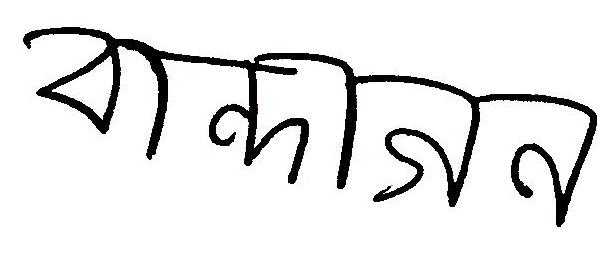 বান্দাগন